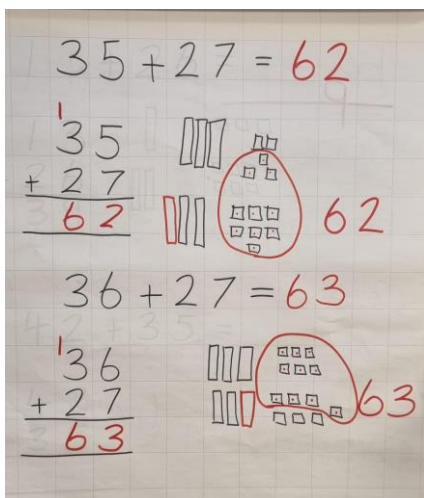 35 + 27 = 62
1
35
+ 27
62
62
36 + 27 = 63
1
36
+ 27
63
63